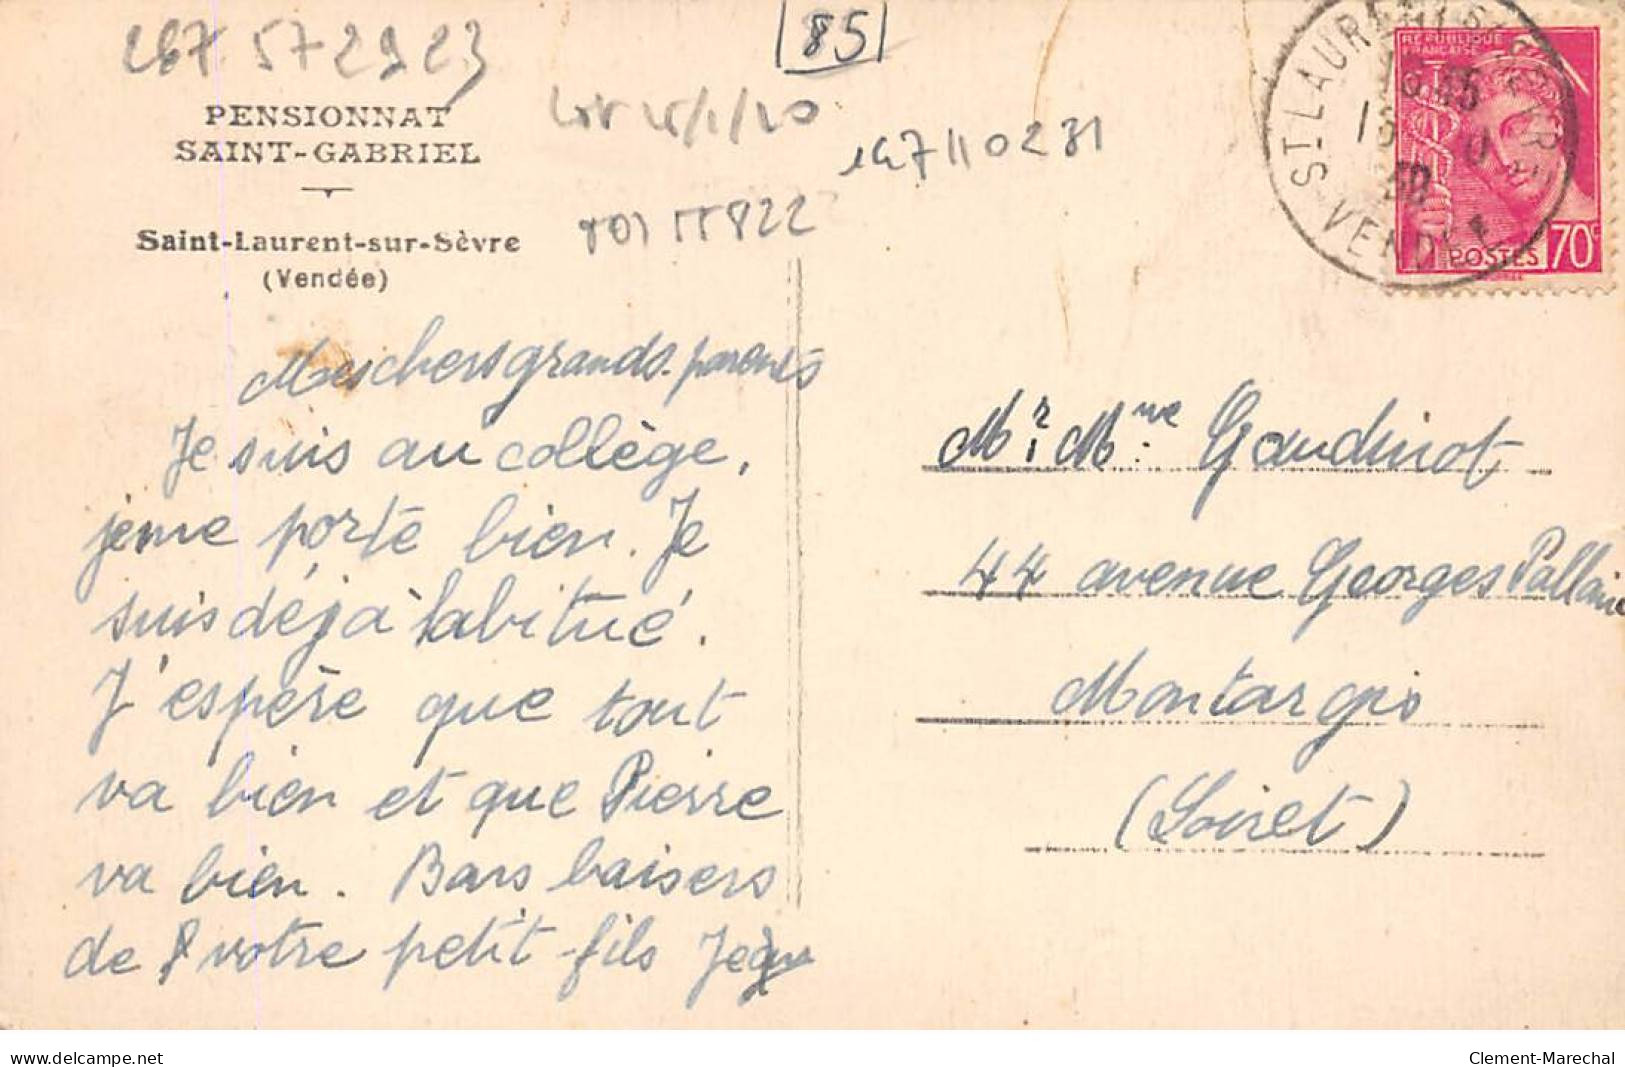 267 572923
85
PENSIONNAT
SAINT-GABRIEL
Saint-Laurent-sur-Sèvre
(Vendée)
147110231
ST-LAURENT S SEVRE
VENDEE
RÉPUBLIQUE
FRANÇAISE
POSTES 70c
Mes chers grands-parents
Je suis au collège,
je me porte bien. Je
suis déjà habitué.
J'espère que tout
va bien et que Pierre
va bien. Bons baisers
de votre petit-fils
Mr. Mme Gaudinot
44 avenue Georges
Montargis
(Loiret)
www.delcampe.net
Clement-Marechal